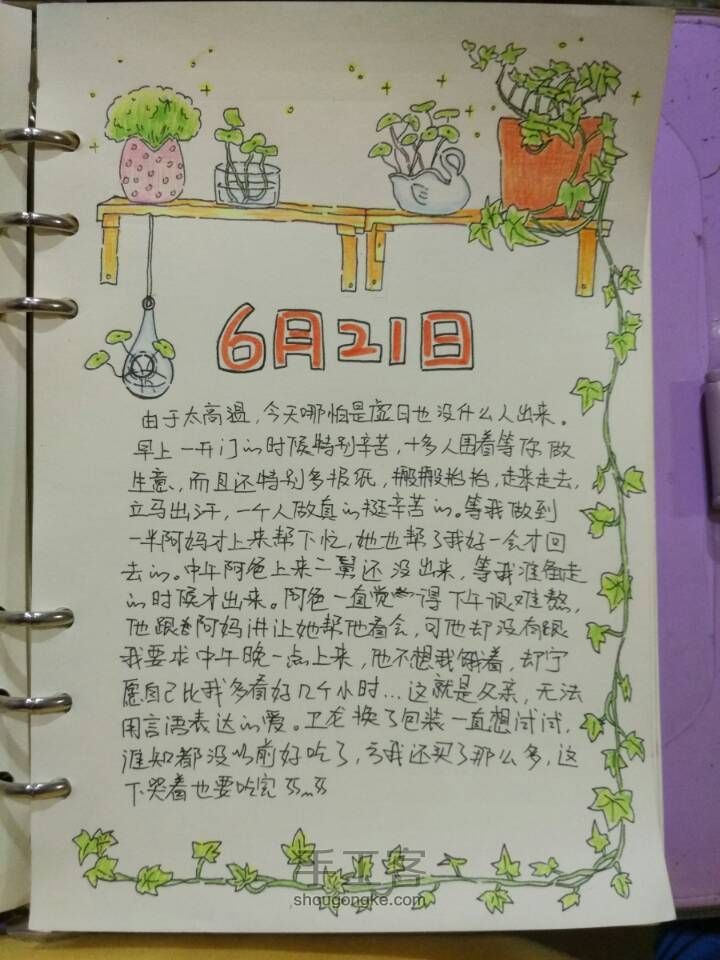 6月21日
由于太高温,今天哪怕是虚日也没什么人出来。
早上一开门的时候特别辛苦,十多人围着等你做
生意,而且还特别多报纸,搬搬抬抬,走来走去,
立马出汗,一个人做真的挺辛苦的。等我做到
一半阿妈才上来帮下忙,她也帮了我好一会才回
去的。中午阿爸上来二舅还没出来,等我准备走
的时候才出来。阿爸一直觉得下午很难熬,
他跟阿妈讲让她帮他看会,可他却没有跟
我要求中午晚一点上来,他不想我饿着,却宁
愿自己比我多看好几个小时…这就是父亲,无法
用言语表达的爱。卫龙换了包装一直想试试,
谁知都没以前好吃了,亏我还买了那么多,这
下哭着也要吃完
手工客
shougongke.com